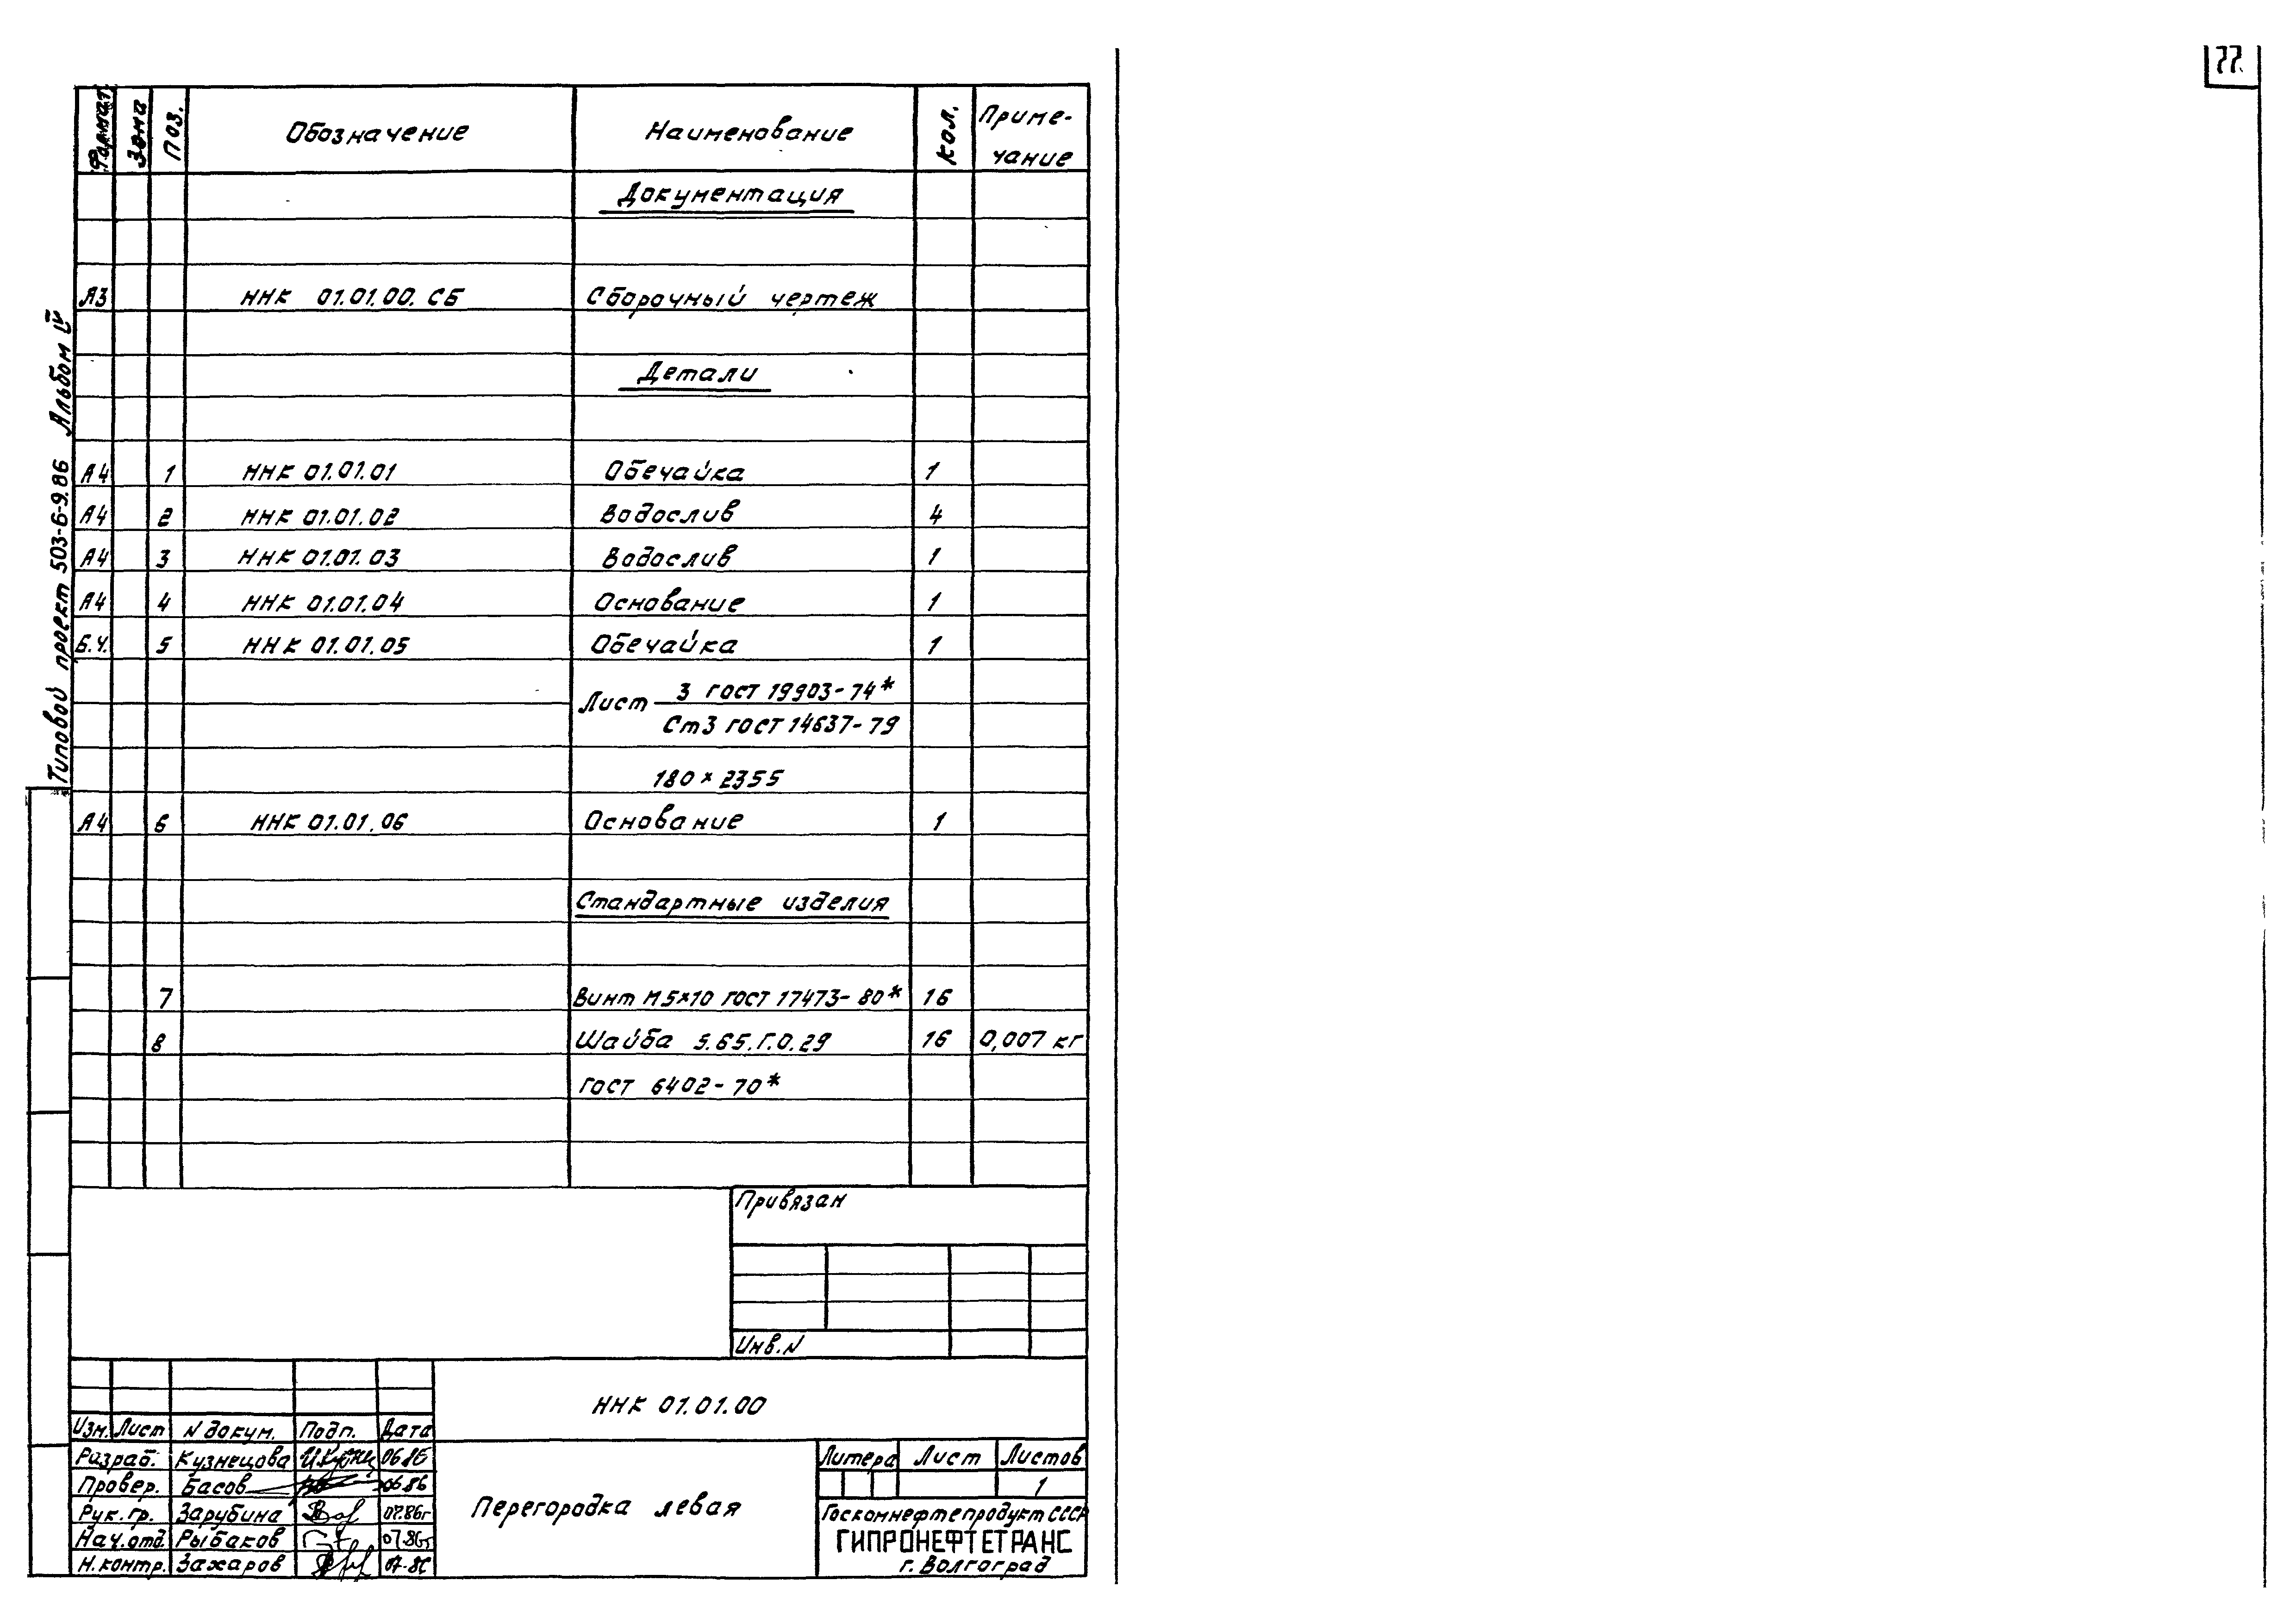 77
Типовой проект 503-6-9.86 Альбом IV
Формат Зона Поз. Обозначение Наименование Кол. Приме-
чание
Документация
А3 ННК 01.01.00. СБ Сборочный чертеж
Детали
А4 1 ННК 01.01.01 Обечайка 1
А4 2 ННК 01.01.02 Водослив 4
А4 3 ННК 01.01.03 Водослив 1
А4 4 ННК 01.01.04 Основание 1
Б.Ч. 5 ННК 01.01.05 Обечайка 1
3 ГОСТ 19903-74*
Лист
Ст3 ГОСТ 14637-79
180 × 2355
А4 6 ННК 01.01.06 Основание 1
Стандартные изделия
7 Винт М5×10 ГОСТ 17473-80* 16
8 Шайба 5.65.Г.0.29 16 0,007 кг
ГОСТ 6402-70*
Привязан
Инв.N
ННК 01.01.00
Изм. Лист N докум. Подп. Дата
Разраб. Кузнецова 06.86
Провер. Басов 06.86
Рук.гр. Зарубина 07.86г
Нач.отд. Рыбаков 07.86г
Н.контр. Захаров 07-86
Перегородка левая
Литера Лист Листов
1
Госкомнефтепродукт СССР
ГИПРОНЕФТЕТРАНС
г. Волгоград